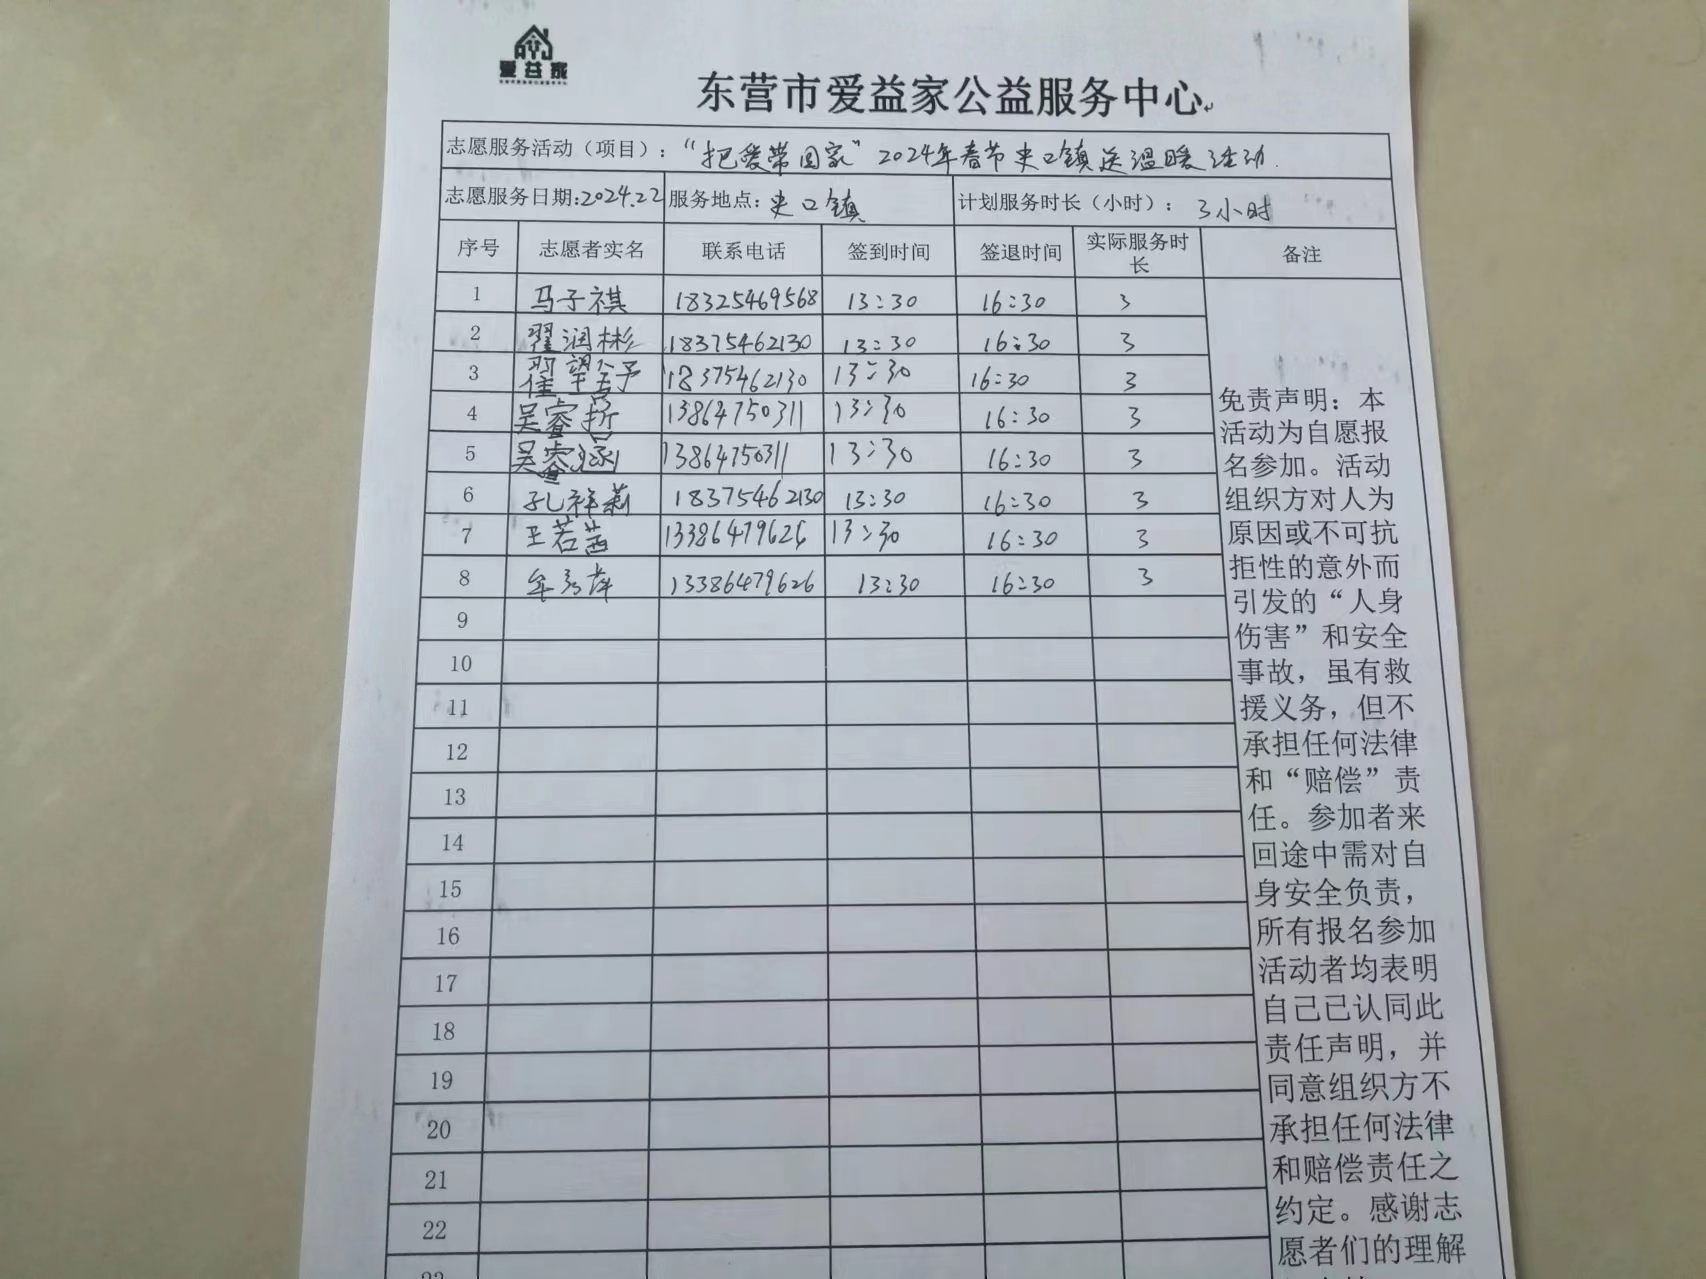 爱益家
东营市爱益家公益服务中心
志愿服务活动（项目）：“把爱带回家”2024年春节史口镇送温暖活动.
志愿服务日期:2024.2.2 服务地点: 史口镇 计划服务时长（小时）: 3小时
序号 志愿者实名 联系电话 签到时间 签退时间 实际服务时长 备注
1 马子祺 18325469568 13:30 16:30 3
2 翟润彬 18375462130 13:30 16:30 3
3 18375462130 13:30 16:30 3
4 吴睿哲 13864750311 13:30 16:30 3
5 吴睿涵 13864750311 13:30 16:30 3
6 孔祥莉 18375462130 13:30 16:30 3
7 王若茜 13386479626 13:30 16:30 3
8 牟 萍 13386479626 13:30 16:30 3
9
10
11
12
13
14
15
16
17
18
19
20
21
22
23
免责声明：本
活动为自愿报
名参加。活动
组织方对人为
原因或不可抗
拒性的意外而
引发的“人身
伤害”和安全
事故，虽有救
援义务，但不
承担任何法律
和“赔偿”责
任。参加者来
回途中需对自
身安全负责，
所有报名参加
活动者均表明
自己已认同此
责任声明，并
同意组织方不
承担任何法律
和赔偿责任之
约定。感谢志
愿者们的理解